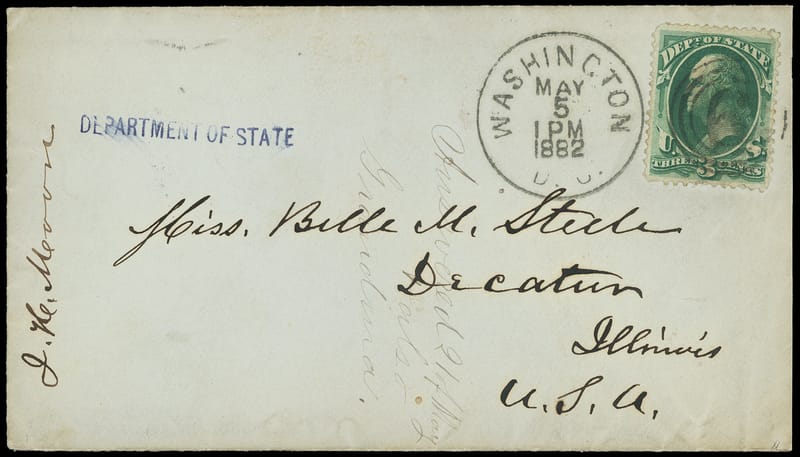 DEPARTMENT OF STATE
WASHINGTON
MAY
5
1 PM
1882
D.C.
DEPT. OF STATE
U. S.
THREE 3 CENTS
Miss. Belle M. Steele
Decatur
Illinois
U.S.A.
Answered 21 May
also
Grandma.